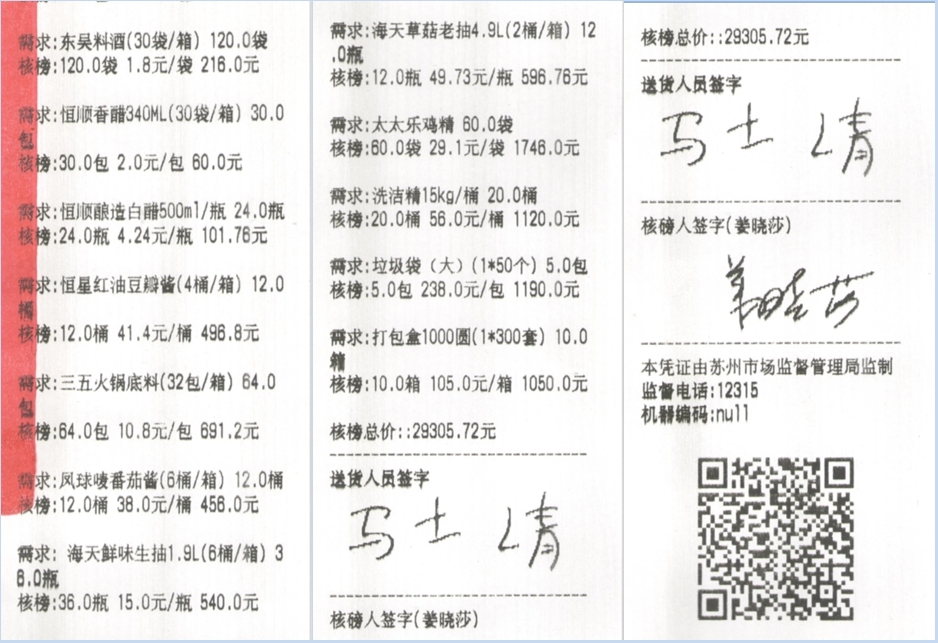 需求:东吴料酒(30袋/箱) 120.0袋
核榜:120.0袋 1.8元/袋 216.0元
需求:恒顺香醋340ML(30袋/箱) 30.0
包
核榜:30.0包 2.0元/包 60.0元
需求:恒顺酿造白醋500ml/瓶 24.0瓶
核榜:24.0瓶 4.24元/瓶 101.76元
需求:恒星红油豆瓣酱(4桶/箱) 12.0
桶
核榜:12.0桶 41.4元/桶 496.8元
需求:三五火锅底料(32包/箱) 64.0
包
核榜:64.0包 10.8元/包 691.2元
需求:凤球唛番茄酱(6桶/箱) 12.0桶
核榜:12.0桶 38.0元/桶 456.0元
需求: 海天鲜味生抽1.9L(6桶/箱) 3
6.0瓶
核榜:36.0瓶 15.0元/瓶 540.0元
需求:海天草菇老抽4.9L(2桶/箱) 12
.0瓶
核榜:12.0瓶 49.73元/瓶 596.76元
需求:太太乐鸡精 60.0袋
核榜:60.0袋 29.1元/袋 1746.0元
需求:洗洁精15kg/桶 20.0桶
核榜:20.0桶 56.0元/桶 1120.0元
需求:垃圾袋（大）(1*50个) 5.0包
核榜:5.0包 238.0元/包 1190.0元
需求:打包盒1000圆(1*300套) 10.0
箱
核榜:10.0箱 105.0元/箱 1050.0元
核榜总价::29305.72元
送货人员签字
马士倩
核磅人签字(姜晓莎)
核榜总价::29305.72元
送货人员签字
马士倩
核磅人签字(姜晓莎)
姜晓莎
本凭证由苏州市场监督管理局监制
监督电话:12315
机器编码:null